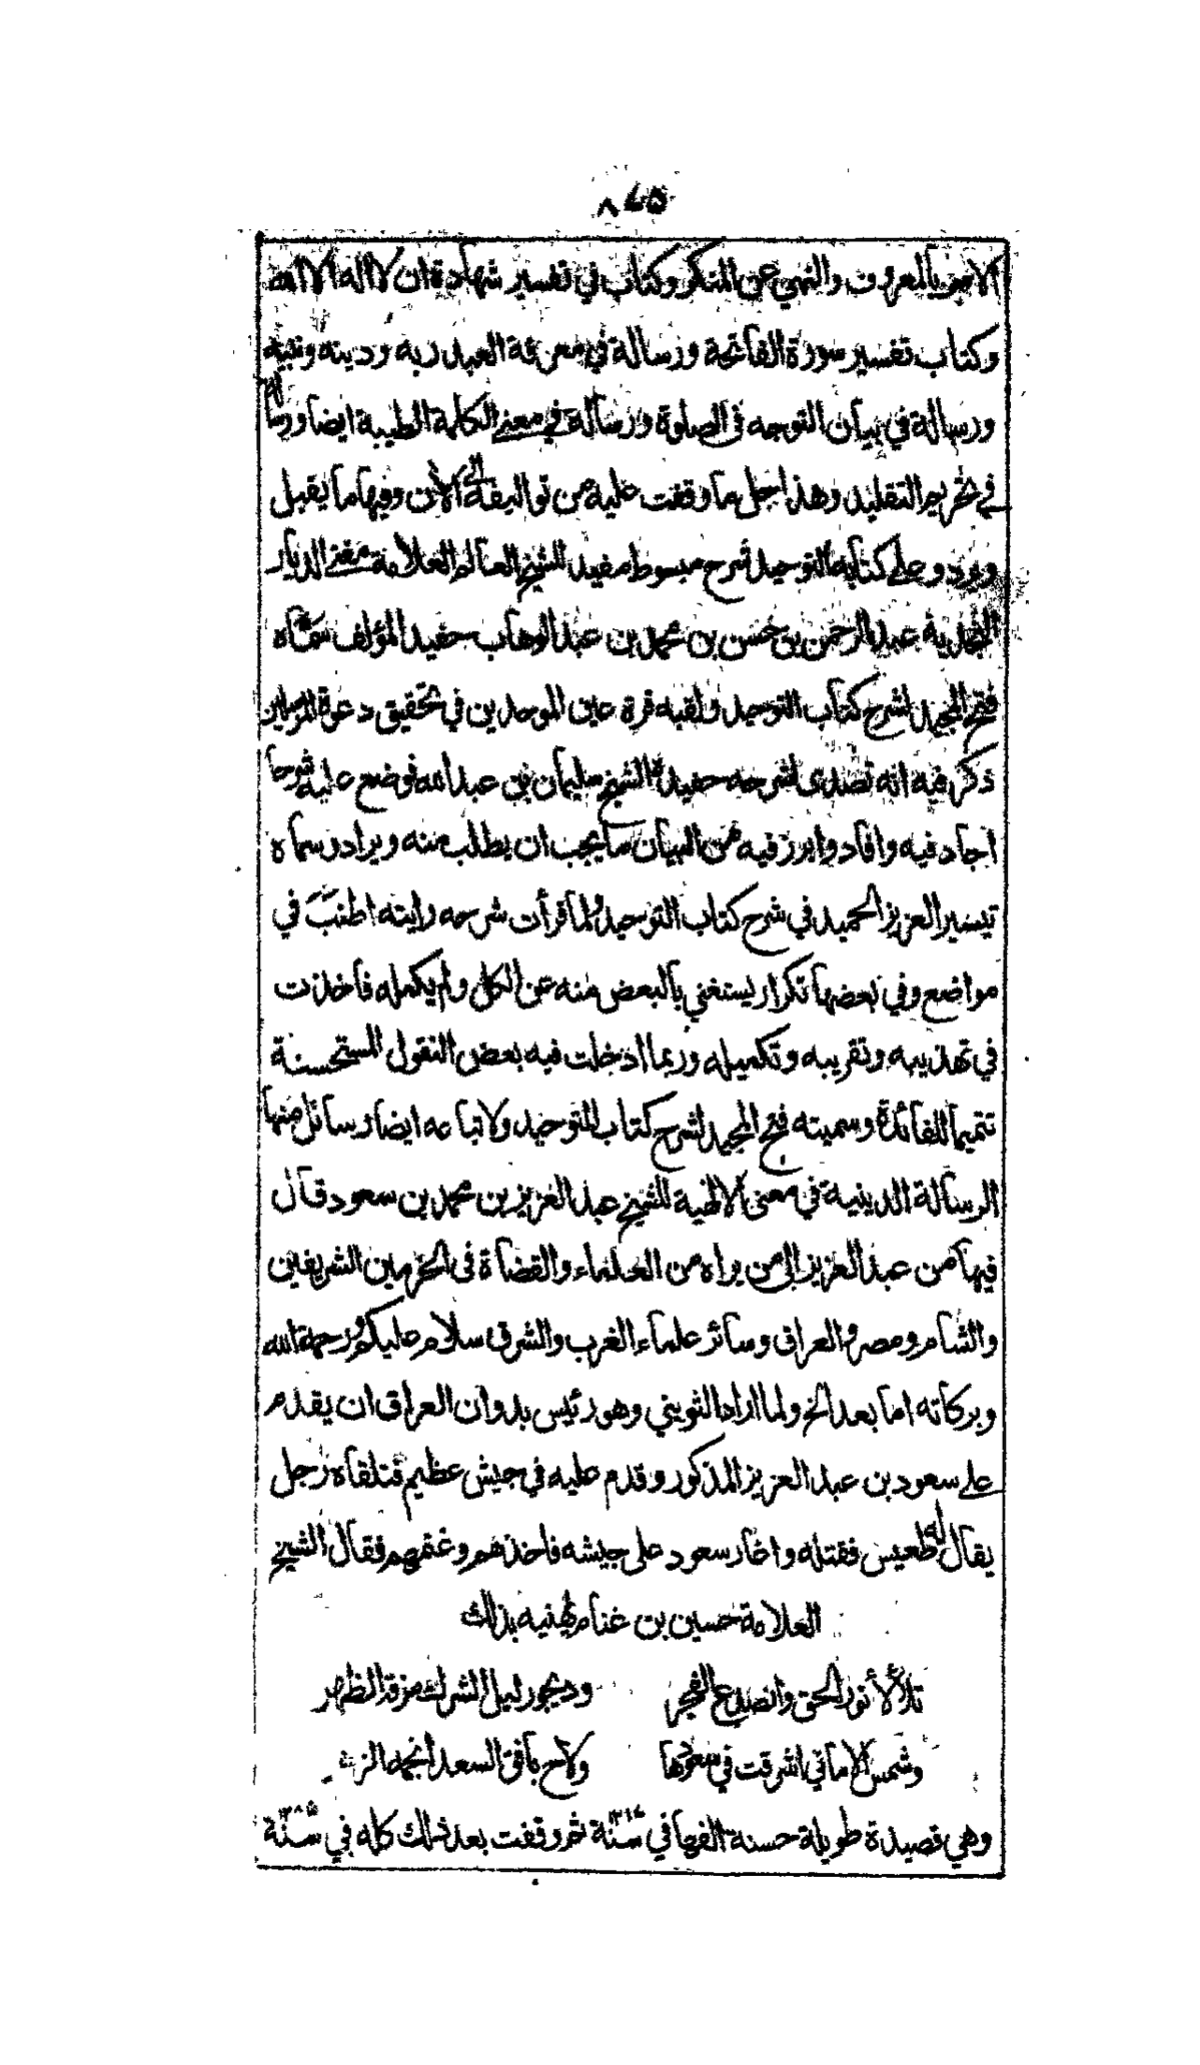 ٨٧٥
الامر بالمعروف والنهي عن المنكر وكتاب في تفسير شهادة ان لا اله الا الله
وكتاب تفسير سورة الفاتحة ورسالة في معرفة العبد ربه ودينه ونبيه
ورسالة في بيان التوجه في الصلوة ورسالة في معنى الكلمة الطيبة ايضا ورسالة
في تحريم التقليد وهذا جل ما وقفت عليه من تواليفه الى الآن وفيها ما يقبل
ويرد وعلى كتابه التوحيد شرح مبسوط مفيد للشيخ العالم العلامة مفتي الديار
النجدية عبد الرحمن بن حسن بن محمد بن عبد الوهاب حفيد المؤلف سماه
فتح المجيد لشرح كتاب التوحيد ولقبه قرة عين الموحدين في تحقيق دعوة المرسلين
ذكر فيه انه تصدى لشرحه حفيده الشيخ سليمان بن عبد الله فوضع عليه شرحا
اجاد فيه وافاد وابرز فيه من البيان ما يجب ان يطلب منه ويراد وسماه
تيسير العزيز الحميد في شرح كتاب التوحيد ولما قرأت شرحه رايته اطنب في
مواضع وفي بعضها تكرار يستغني بالبعض منه عن الكل ولم يكمله فاخذت
في تهذيبه وتقريبه وتكميله وربما ادخلت فيه بعض النقول المستحسنة
تتميما للفائدة وسميته فتح المجيد لشرح كتاب التوحيد ولاتباعه ايضا رسائل منها
الرسالة الدينية في معنى الالهية للشيخ عبد العزيز بن محمد بن سعود قال
فيها من عبد العزيز الى من يراه من العلماء والقضاة في الحرمين الشريفين
والشام ومصر والعراق وسائر علماء الغرب والشرق سلام عليكم ورحمة الله
وبركاته اما بعد الخ ولما اراد الثويني وهو رئيس بدوان العراق ان يقدم
على سعود بن عبد العزيز المذكور وقدم عليه في جيش عظيم فتلقاه رجل
يقال له طعيس فقتله واغار سعود على جيشه فاخذهم وغنمهم فقال الشيخ
العلامة حسين بن غنام يهنيه بذلك
تلألأ نور الحق وانصدع الفجر وديجور ليل الشرك مزقه الظهر
وشمس الاماني اشرقت في سعودها ولاح بافق السعد انجمه الزهر
وهي قصيدة طويلة حسنة الفها في سنة ثم وقفت بعد ذلك كله في سنة